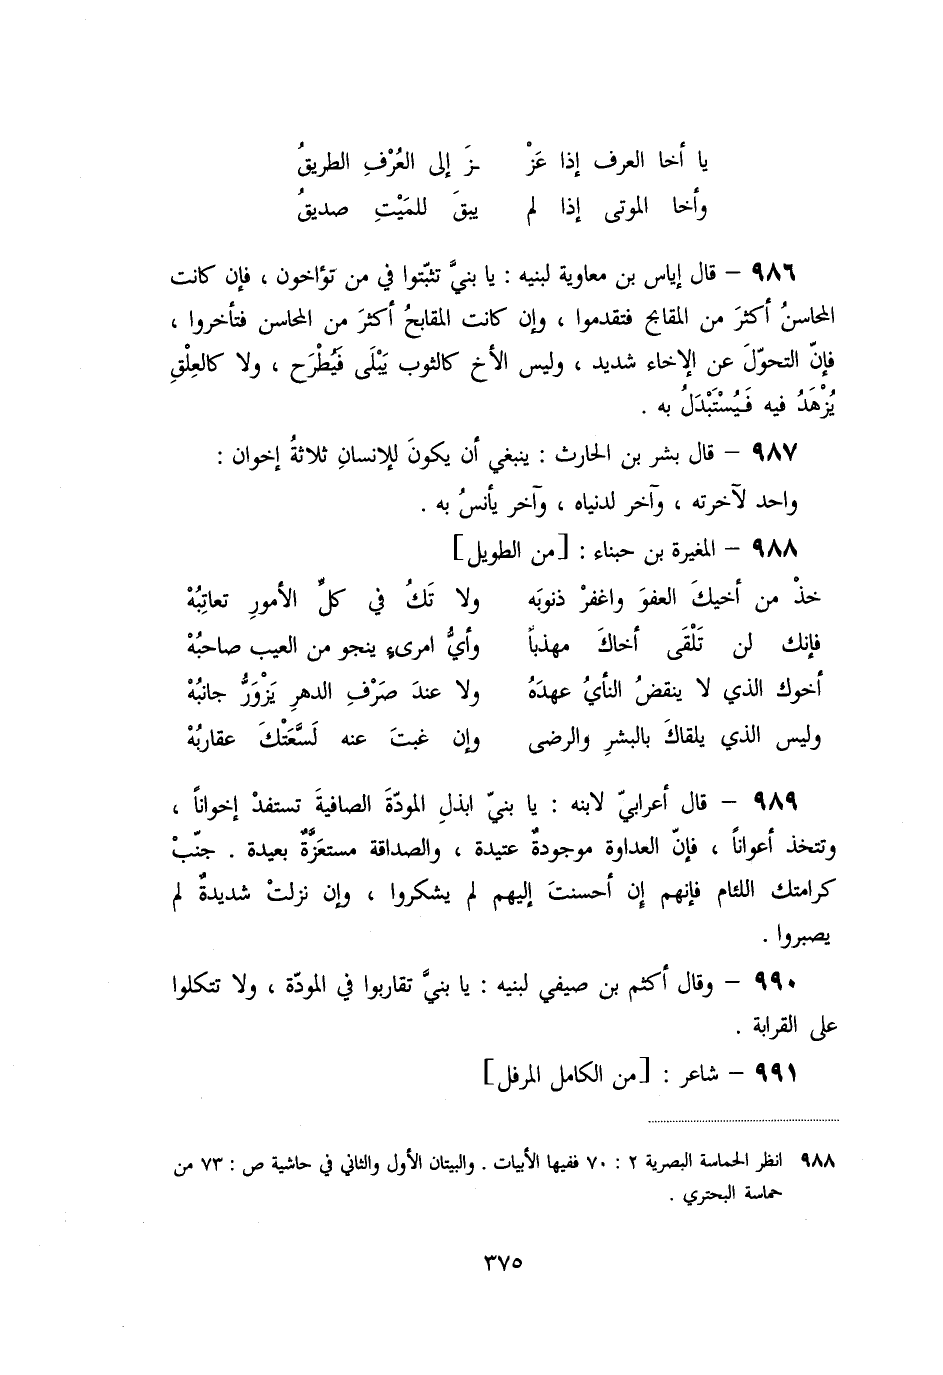 يا أخا العرف إذا عَزْ ـزَ إلى العُرْفِ الطريقُ
وأخا الموتى إذا لم يبقَ للمَيْتِ صديقُ
٩٨٦ – قال إياس بن معاوية لبنيه : يا بنيَّ تثبّتوا في من تؤاخون ، فإن كانت
المحاسنُ أكثرَ من المقابح فتقدموا ، وإن كانت المقابحُ أكثرَ من المحاسن فتأخروا ،
فإنّ التحوّلَ عن الإخاء شديد ، وليس الأخ كالثوب يَبْلَى فَيُطْرَح ، ولا كالعِلْقِ
يُزْهَدُ فيه فَيُسْتَبْدَلُ به .
٩٨٧ – قال بشر بن الحارث : ينبغي أن يكونَ للإنسانِ ثلاثةُ إخوان :
واحد لآخرته ، وآخر لدنياه ، وآخر يأنسُ به .
٩٨٨ – المغيرة بن حبناء : [من الطويل]
خذْ من أخيكَ العفوَ واغفرْ ذنوبَه ولا تَكُ في كلِّ الأمورِ تعاتِبُهْ
فإنك لن تَلْقَى أخاكَ مهذباً وأيُّ امرىءٍ ينجو من العيب صاحبُهْ
أخوك الذي لا ينقضُ النأيُ عهدَهُ ولا عندَ صَرْفِ الدهرِ يَزْوَرُّ جانبُهْ
وليس الذي يلقاكَ بالبشرِ والرضى وإن غبتَ عنه لَسَّعَتْكَ عقاربُهْ
٩٨٩ – قال أعرابيّ لابنه : يا بنيّ ابذلِ المودّةَ الصافيةَ تستفدْ إخواناً ،
وتتخذ أعواناً ، فإنّ العداوة موجودةٌ عتيدة ، والصداقة مستعَزَّةٌ بعيدة . جنّبْ
كرامتك اللئام فإنهم إن أحسنتَ إليهم لم يشكروا ، وإن نزلتْ شديدةٌ لم
يصبروا .
٩٩٠ – وقال أكثم بن صيفي لبنيه : يا بنيَّ تقاربوا في المودّة ، ولا تتكلوا
على القرابة .
٩٩١ – شاعر : [من الكامل المرفل]
٩٨٨ انظر الحماسة البصرية ٢ : ٧٠ ففيها الأبيات . والبيتان الأول والثاني في حاشية ص : ٧٣ من
حماسة البحتري .
٣٧٥